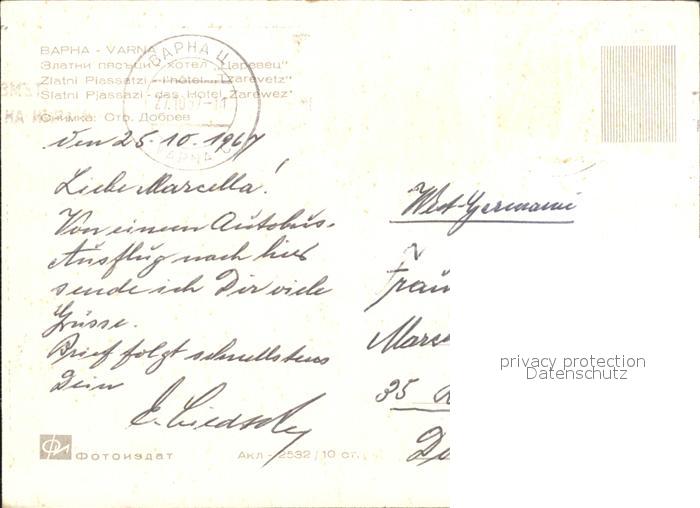 ВАРНА - VARNA
Златни пясъци - хотел „Царевец"
Zlatni Piassatzi - l'hôtel „Tzarevetz"
Slatni Pjassazi - das Hotel „Zarewez"
Снимка: Стр. Добрев
ВАРНА Ц
27.10.67-11
VARNA
den 25.10.1967
Liebe Marcella!
Von einem Autobus-
Ausflug nach hier
sende ich Dir viele
Grüsse.
Brief folgt schnellstens
Dein
West-Germani
Fräu
Marce
35
privacy protection
Datenschutz
Фотоиздат
Акл - 2532 / 10 ст.